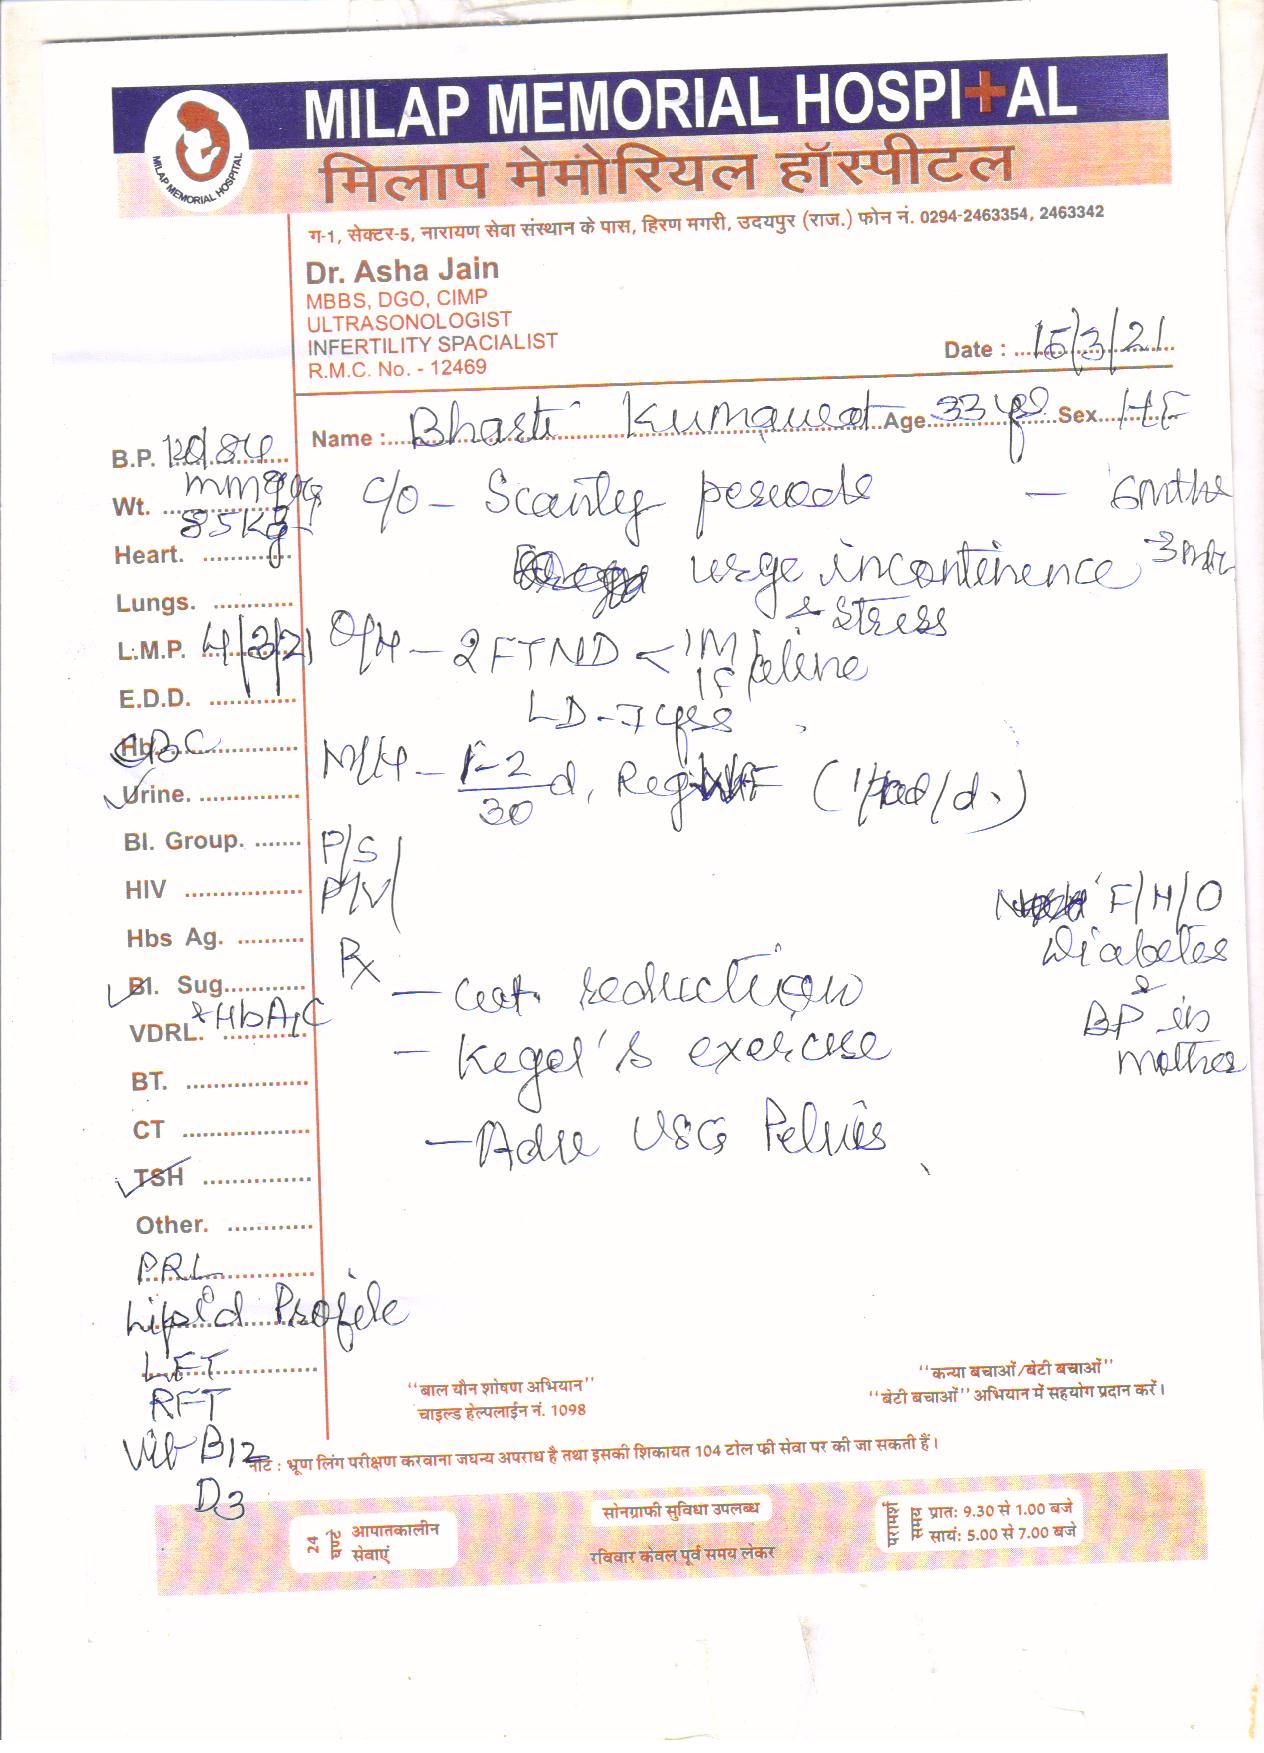 MILAP MEMORIAL HOSPITAL
मिलाप मेमोरियल हॉस्पीटल
MILAP MEMORIAL HOSPITAL
ग-1, सेक्टर-5, नारायण सेवा संस्थान के पास, हिरण मगरी, उदयपुर (राज.) फोन नं. 0294-2463354, 2463342
Dr. Asha Jain
MBBS, DGO, CIMP
ULTRASONOLOGIST
INFERTILITY SPACIALIST
R.M.C. No. - 12469
Date : 15/3/21
Name : Bharti Kumawat Age 33 yrs Sex
B.P. 84
mmHg
Wt. 85kg
c/o - Scanty periods - 6mths
Heart.
urge incontinence 3mth
& stress
Lungs.
L.M.P. 4/3/21
O/H - 2 FTND < 1M 1F
E.D.D.
LD - 7 yrs
Hb. CBC
M/H - 1-2/30 d, Reg (1 Pad/d.)
Urine.
Bl. Group.
P/S
HIV
P/V
F/H/O
Diabetes
&
BP in
mother
Hbs Ag.
Rx
Bl. Sug.
+ HbA1C
- wt. reduction
VDRL.
- Kegel's exercise
BT.
CT
- Adv USG Pelvis
TSH
Other.
PRL
Lipid Profile
LFT
RFT
Vit B12
D3
"बाल यौन शोषण अभियान"
चाइल्ड हेल्पलाईन नं. 1098
"कन्या बचाओं/बेटी बचाओं"
"बेटी बचाओं" अभियान में सहयोग प्रदान करें।
नोट : भ्रूण लिंग परीक्षण करवाना जघन्य अपराध है तथा इसकी शिकायत 104 टोल फ्री सेवा पर की जा सकती हैं।
24 घण्टे आपातकालीन
सेवाएं
सोनग्राफी सुविधा उपलब्ध
रविवार केवल पूर्व समय लेकर
परामर्श समय
प्रात: 9.30 से 1.00 बजे
सायं: 5.00 से 7.00 बजे